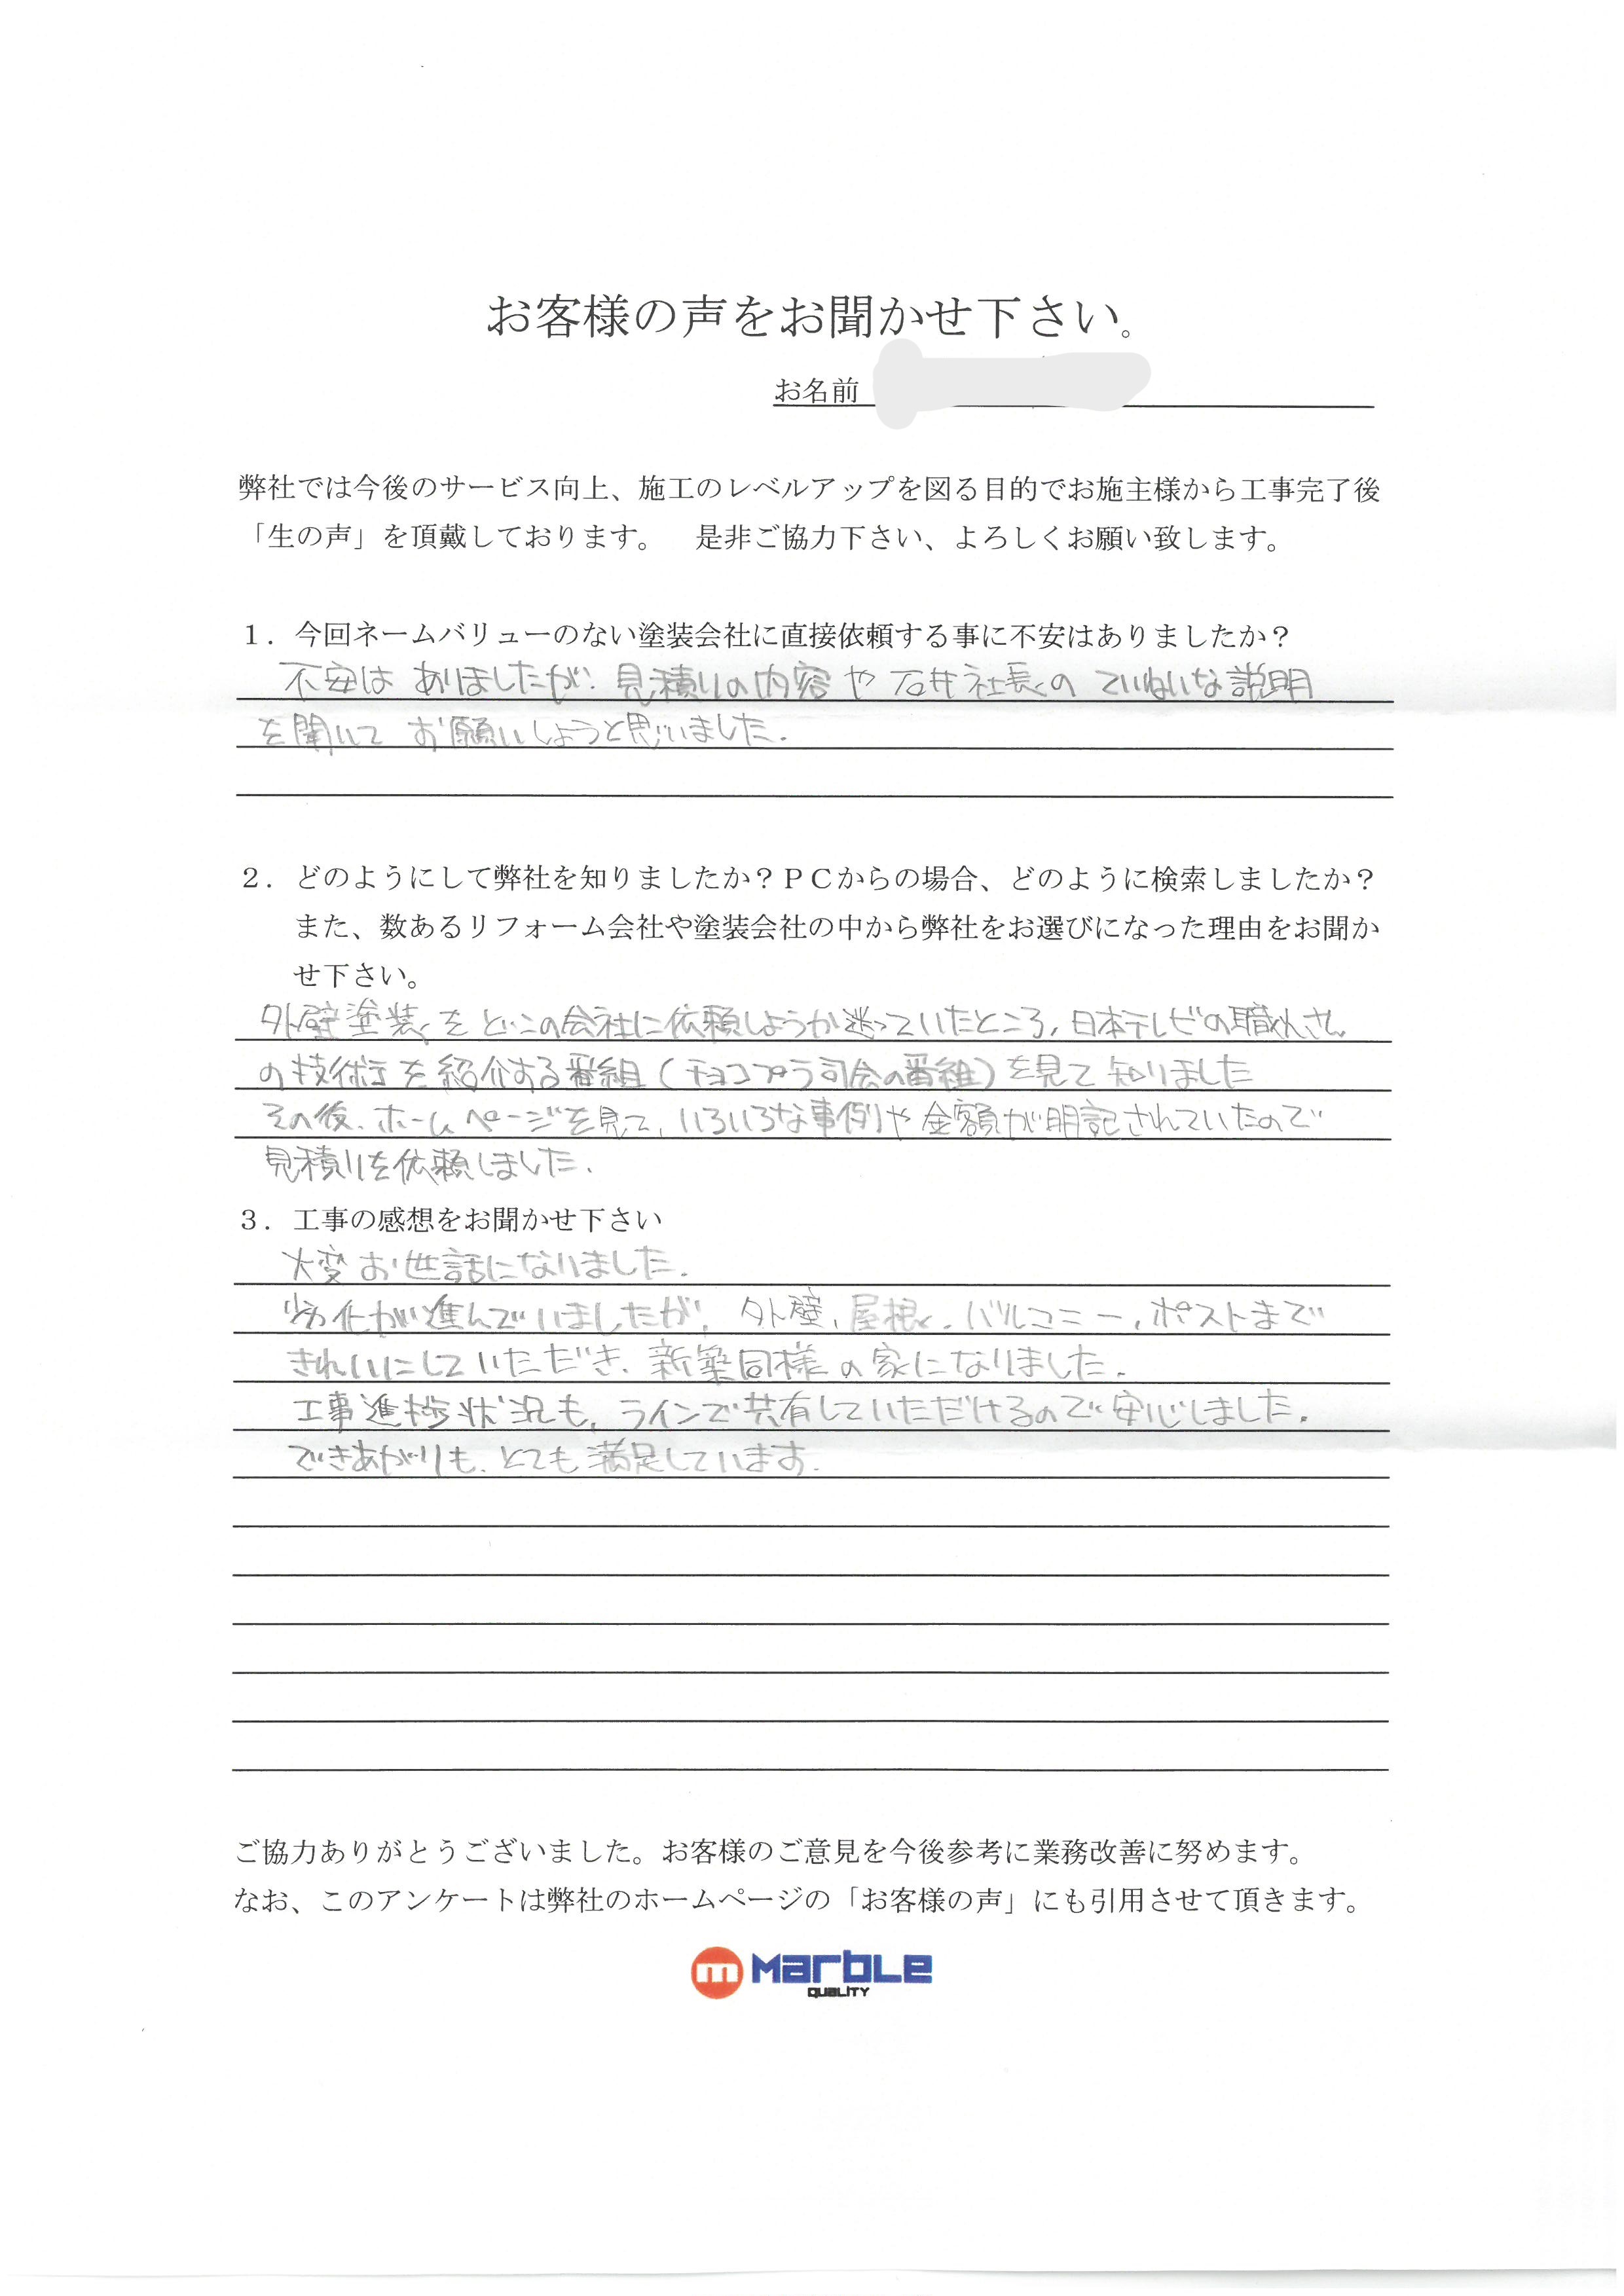 お客様の声をお聞かせ下さい。
お名前
弊社では今後のサービス向上、施工のレベルアップを図る目的でお施主様から工事完了後
「生の声」を頂戴しております。　是非ご協力下さい、よろしくお願い致します。
１．今回ネームバリューのない塗装会社に直接依頼する事に不安はありましたか？
不安は ありましたが、見積りの内容や石井社長のていねいな説明
を聞いて お願いしようと思いました。
２．どのようにして弊社を知りましたか？ＰＣからの場合、どのように検索しましたか？
また、数あるリフォーム会社や塗装会社の中から弊社をお選びになった理由をお聞か
せ下さい。
外壁塗装をどこの会社に依頼しようか迷っていたところ、日本テレビの職人さん
の技術を紹介する番組（チョコプラ司会の番組）を見て知りました
その後、ホームページを見て、いろいろな事例や金額が明記されていたので
見積りを依頼しました。
３．工事の感想をお聞かせ下さい
大変お世話になりました。
劣化が進んでいましたが、外壁、屋根、バルコニー、ポストまで
きれいにしていただき、新築同様の家になりました。
工事進捗状況も、ラインで共有していただけるので安心しました。
できあがりも、とても満足しています。
ご協力ありがとうございました。お客様のご意見を今後参考に業務改善に努めます。
なお、このアンケートは弊社のホームページの「お客様の声」にも引用させて頂きます。
m Marble
QUALITY